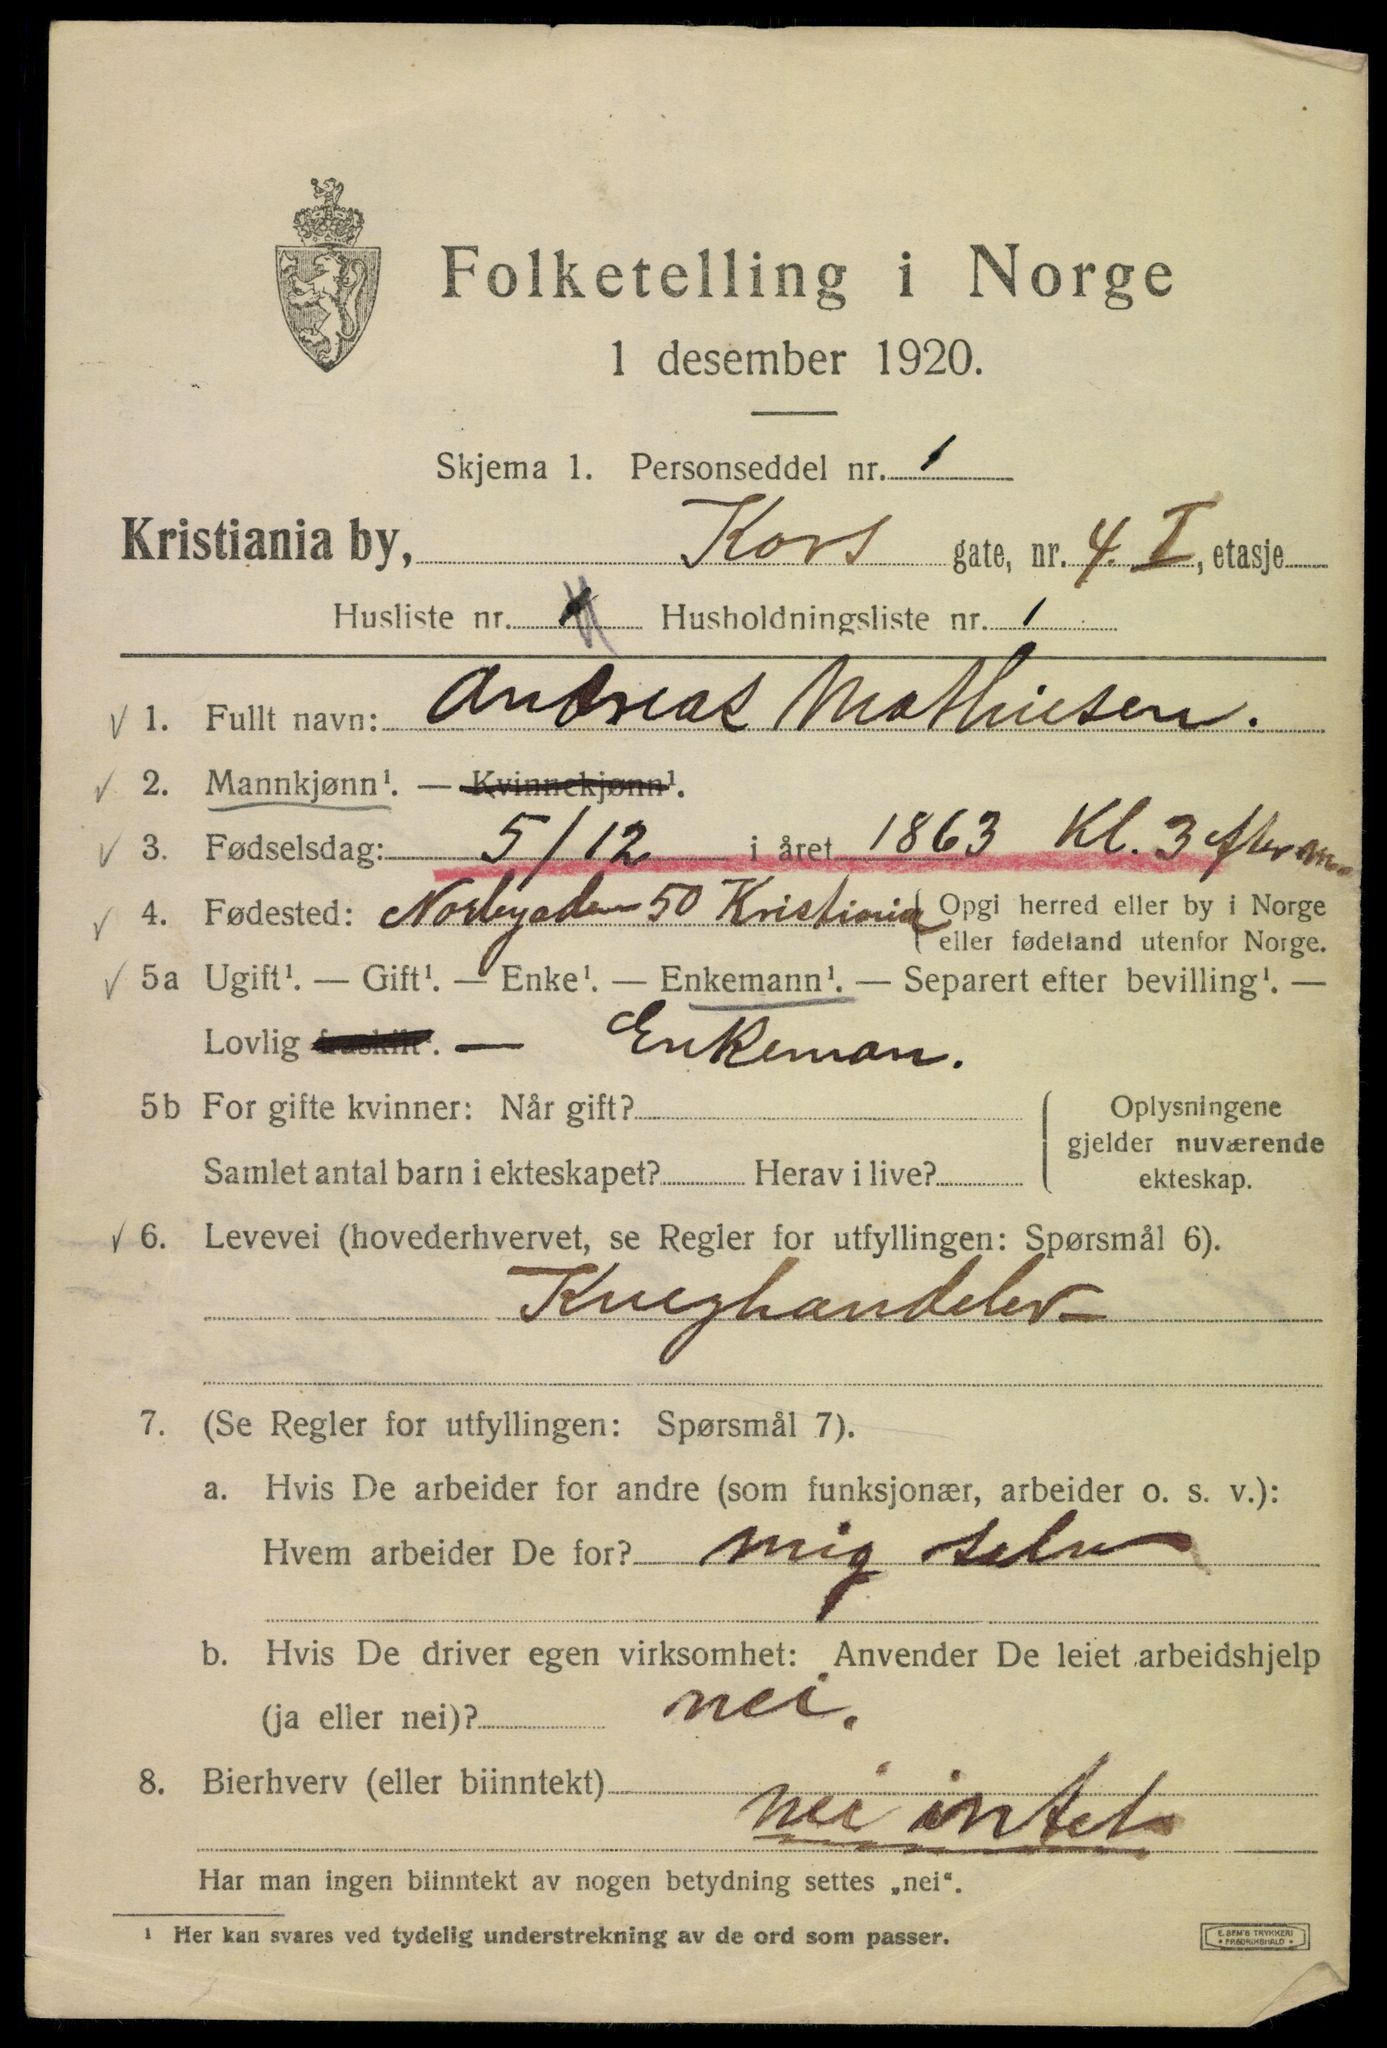 Folketelling i Norge
1 desember 1920.
Skjema 1. Personseddel nr. 1
Kristiania by, Kors gate, nr. 4. I, etasje
Husliste nr. Husholdningsliste nr. 1
✓ 1. Fullt navn: Andreas Mathiesen.
✓ 2. Mannkjønn¹. — Kvinnekjønn¹.
✓ 3. Fødselsdag: 5/12 i året 1863 Kl. 3 efterm.
✓ 4. Fødested: Norbygaden 50 Kristiania (Opgi herred eller by i Norge
eller fødeland utenfor Norge.
✓ 5a Ugift¹. — Gift¹. — Enke¹. — Enkemann¹. — Separert efter bevilling¹. —
Lovlig fraskilt¹. — Enkeman.
5b For gifte kvinner: Når gift? Oplysningene
gjelder nuværende
Samlet antal barn i ekteskapet? Herav i live? ekteskap.
✓ 6. Levevei (hovederhvervet, se Regler for utfyllingen: Spørsmål 6).
Kveghandeler
7. (Se Regler for utfyllingen: Spørsmål 7).
a. Hvis De arbeider for andre (som funksjonær, arbeider o. s. v.):
Hvem arbeider De for? mig selv
b. Hvis De driver egen virksomhet: Anvender De leiet arbeidshjelp
(ja eller nei)? nei.
8. Bierhverv (eller biinntekt)
nei intet
Har man ingen biinntekt av nogen betydning settes „nei“.
¹ Her kan svares ved tydelig understrekning av de ord som passer.
E. SEM'S TRYKKERI
FREDRIKSHALD